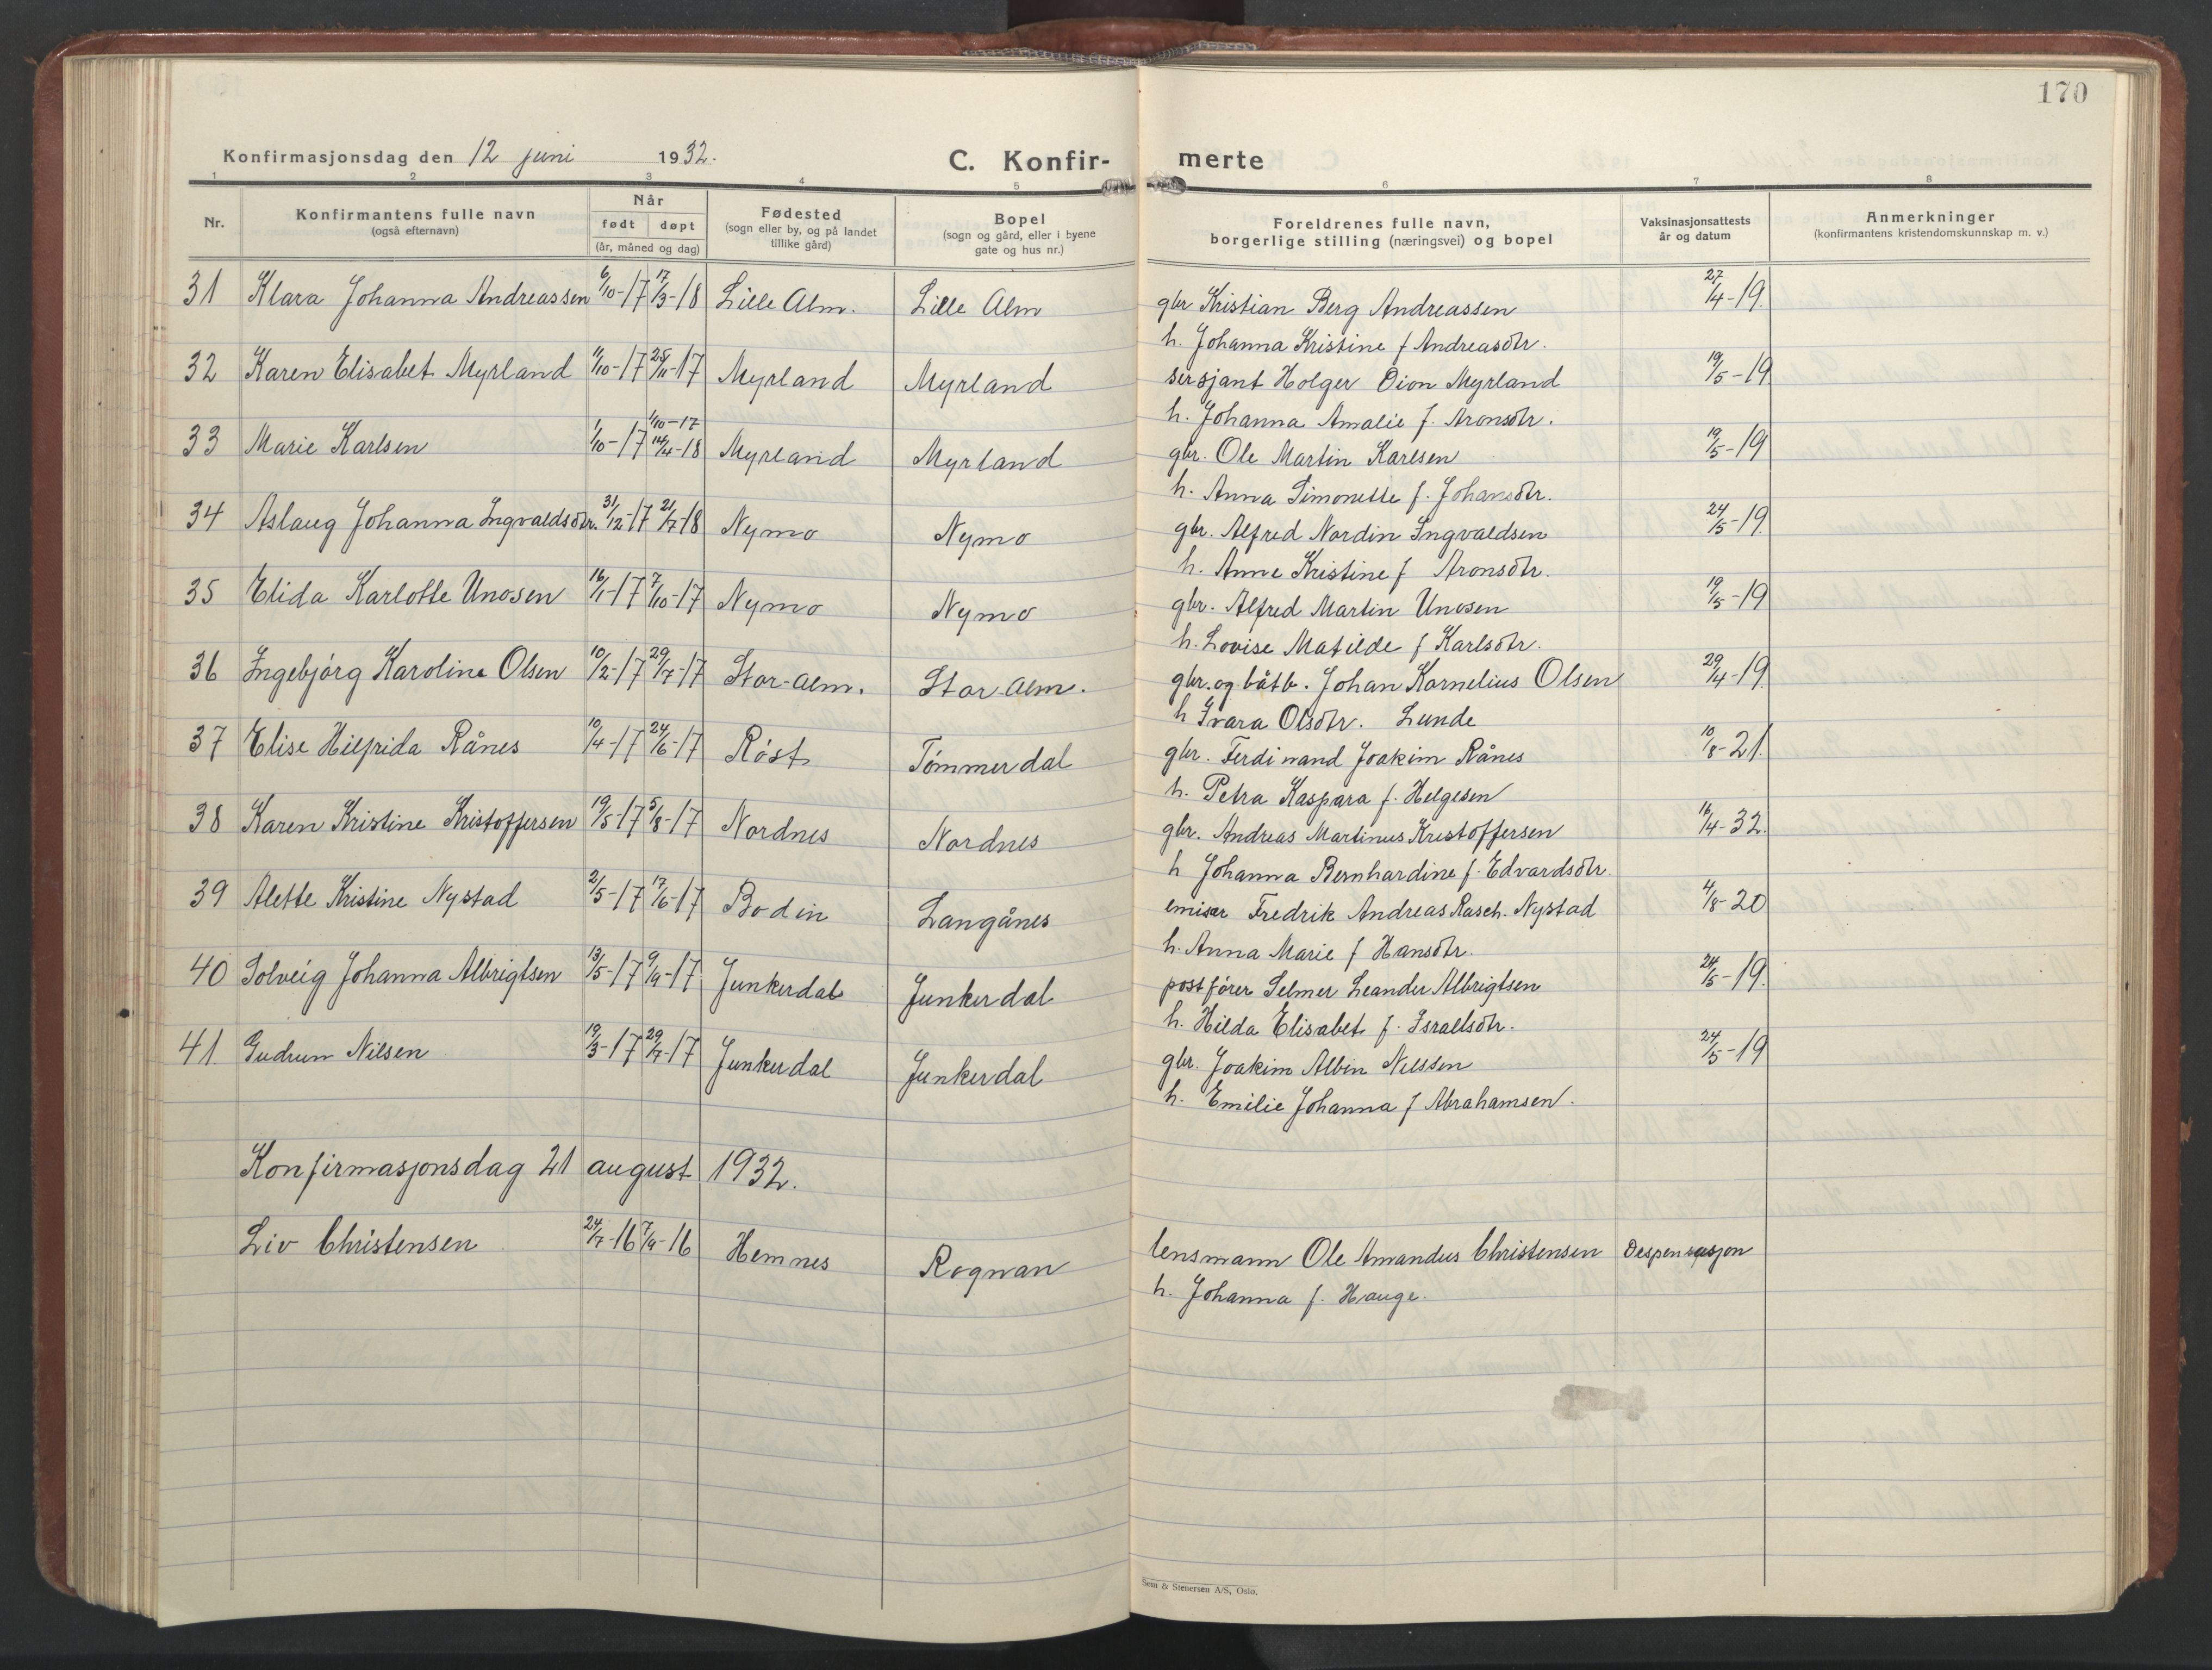 170
Konfirmasjonsdag den 12 juni 1932.
C. Konfir- merte
1 2 3 4 5 6 7 8
Nr.
Konfirmantens fulle navn
(også efternavn)
Når
født døpt
(år, måned og dag)
Fødested
(sogn eller by, og på landet
tillike gård)
Bopel
(sogn og gård, eller i byene
gate og hus nr.)
Foreldrenes fulle navn,
borgerlige stilling (næringsvei) og bopel
Vaksinasjonsattests
år og datum
Anmerkninger
(konfirmantens kristendomskunnskap m. v.)
31 Klara Johanna Andreassen 6/10-17 17/3-18 Lille Alm. Lille Alm gbr Kristian Berg Andreassen 27/4-19.
h. Johanna Kristine f Andreasdtr.
32 Karen Elisabet Myrland 11/10-17 25/11-17 Myrland Myrland sersjant Holger Dion Myrland 19/5-19
h. Johanna Amalie f. Aronsdtr.
1/10-17
33 Marie Karlsen 1/10-17 14/4-18 Myrland Myrland gbr. Ole Martin Karlsen 19/5-19
h. Anna Simonette f. Johansdtr.
34 Aslaug Johanna Ingvaldsdtr. 31/12-17 21/7-18 Nymo Nymo gbr. Alfred Nordin Ingvaldsen 24/5-19.
h. Anne Kristine f Aronsdtr.
35 Elida Karlotte Unosen 16/1-17 7/10-17 Nymo Nymo gbr. Alfred Martin Unosen 19/5-19
h. Lovise Matilde f Karlsdtr.
36 Ingebjørg Karoline Olsen 10/2-17 29/7-17 Stor-Alm. Stor-Alm. gbr. og båtb. Johan Kornelius Olsen 29/4-19.
h Ivara Olsdtr. Lunde
37 Elise Hilfrida Rånes 10/4-17 24/6-17 Røst Tømmerdal gbr. Ferdinand Joakim Rånes 10/8-21.
h. Petra Kaspara f. Helgesen
38 Karen Kristine Kristoffersen 19/5-17 5/8-17 Nordnes Nordnes gbr. Andreas Martinus Kristoffersen 16/4-32.
h Johanna Bernhardine f. Edvardsdtr.
39 Alette Kristine Nystad 2/5-17 17/6-17 Bodin Langånes emisær Fredrik Andreas Rasch. Nystad 4/8-20
h. Anna Marie f Hansdtr.
40 Solveig Johanna Albrigtsen 13/5-17 9/9-17 Junkerdal Junkerdal postfører Selmer Leander Albrigtsen 24/5-19.
h. Hilda Elisabet f. Israelsdtr.
41. Gudrun Nilsen 19/3-17 29/7-17 Junkerdal Junkerdal gbr. Joakim Albin Nilssen 24/5-19
h. Emilie Johanna f Abrahamsen.
Konfirmasjonsdag 21 august 1932.
Liv Christensen 24/7-16 7/9-16 Hemnes Rognan lensmann Ole Amandus Christensen Dispensasjon
h. Johanna f. Hauge.
Sem & Stenersen A/S, Oslo.